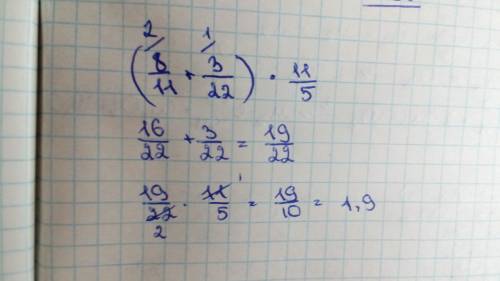 2 1
(8/11 + 3/22) · 11/5
16/22 + 3/22 = 19/22
19/22 · 11/5 = 19/10 = 1,9
2 1